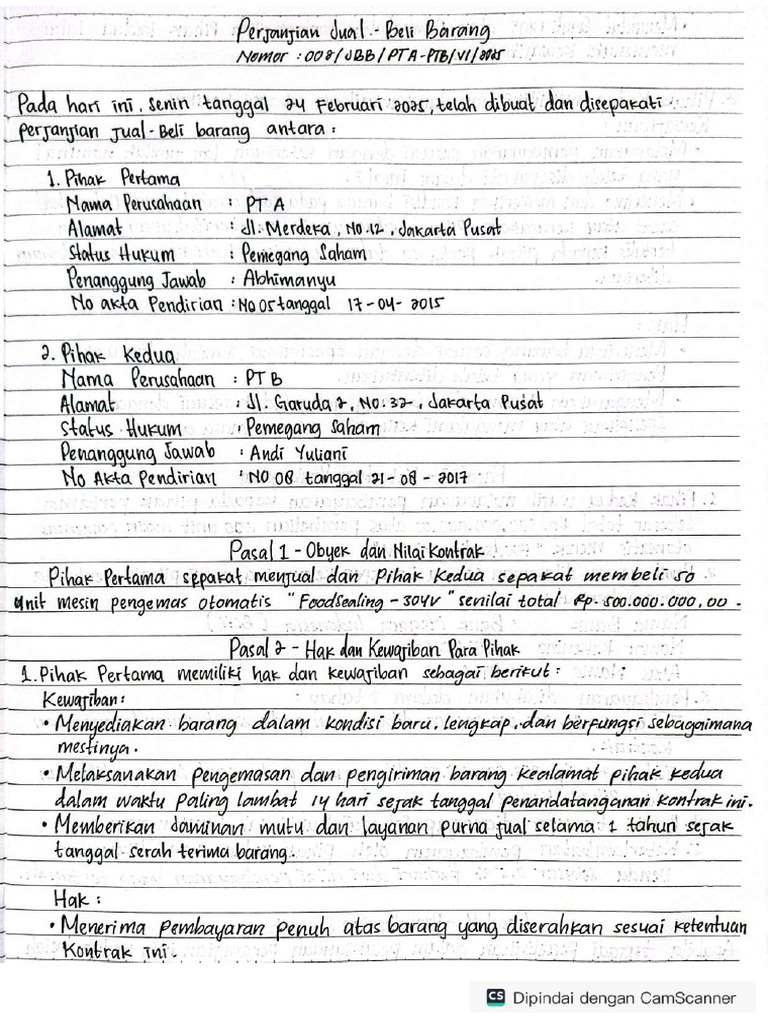 Perjanjian Jual-Beli Barang
Nomor : 008/JBB/PTA-PTB/VI/2025
Pada hari ini, Senin tanggal 24 Februari 2025, telah dibuat dan disepakati
perjanjian jual-Beli barang antara :
1. Pihak Pertama
Nama Perusahaan : PT A
Alamat : Jl. Merdeka, NO.12, Jakarta Pusat
Status Hukum : Pemegang Saham
Penanggung Jawab : Abhimanyu
No akta Pendirian : NO 05 tanggal 17-04-2015
2. Pihak Kedua
Nama Perusahaan : PT B
Alamat : Jl. Garuda 2, NO.32, Jakarta Pusat
Status Hukum : Pemegang Saham
Penanggung Jawab : Andi Yuliani
No Akta Pendirian : NO 08 tanggal 21-08-2017
Pasal 1 - Obyek dan Nilai Kontrak
Pihak Pertama sepakat menjual dan Pihak Kedua sepakat membeli 50
unit mesin pengemas otomatis "FoodSealing-304V" senilai total Rp. 500.000.000,00.
Pasal 2 - Hak dan Kewajiban Para Pihak
1. Pihak Pertama memiliki hak dan kewajiban sebagai berikut :
Kewajiban :
• Menyediakan barang dalam kondisi baru, lengkap, dan berfungsi sebagaimana
mestinya.
• Melaksanakan pengemasan dan pengiriman barang kealamat pihak kedua
dalam waktu paling lambat 14 hari sejak tanggal penandatanganan kontrak ini.
• Memberikan Jaminan mutu dan layanan purna jual selama 1 tahun sejak
tanggal serah terima barang.
Hak :
• Menerima pembayaran penuh atas barang yang diserahkan sesuai ketentuan
Kontrak ini.
CS Dipindai dengan CamScanner